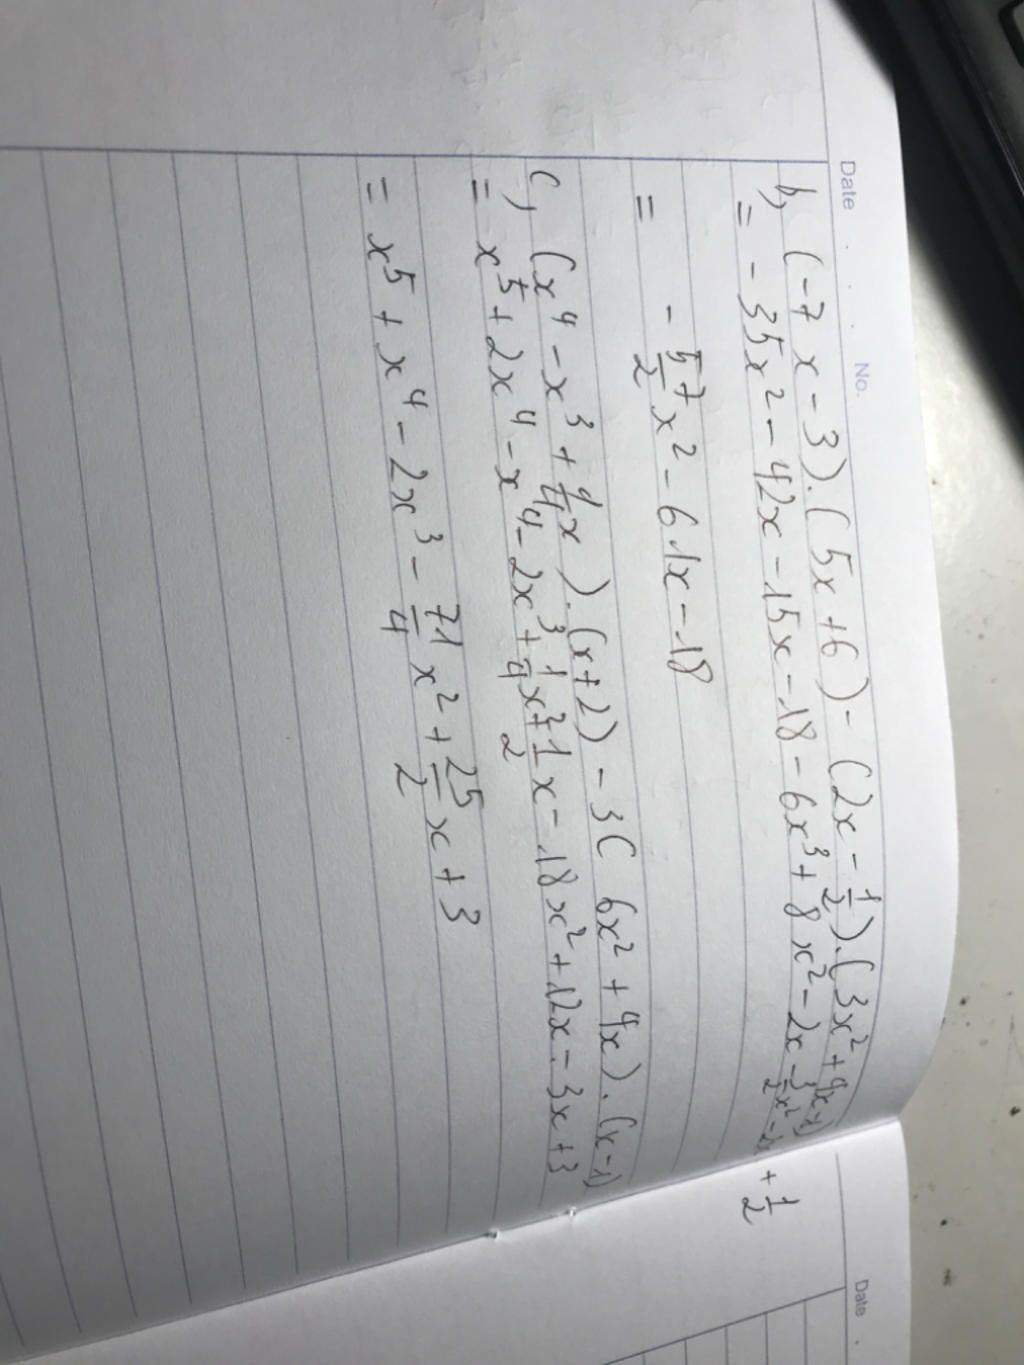 Date No.
b, (-7x - 3).(5x + 6) - (2x - 1/2).(3x² + 4x - 1)
= - 35x² - 42x - 15x - 18 - 6x³ + 8x² - 2x - 3/2x² - 2x + 1/2
= - 57/2 x² - 61x - 18
c, (x⁴ - x³ + 1/4x).(x+2) - 3( 6x² + 4x).(x-1)
= x⁵ + 2x⁴ - x⁴ - 2x³ + 1/4x² + 1/2x - 18x² + 12x - 3x + 3
= x⁵ + x⁴ - 2x³ - 71/4 x² + 25/2 x + 3
Date